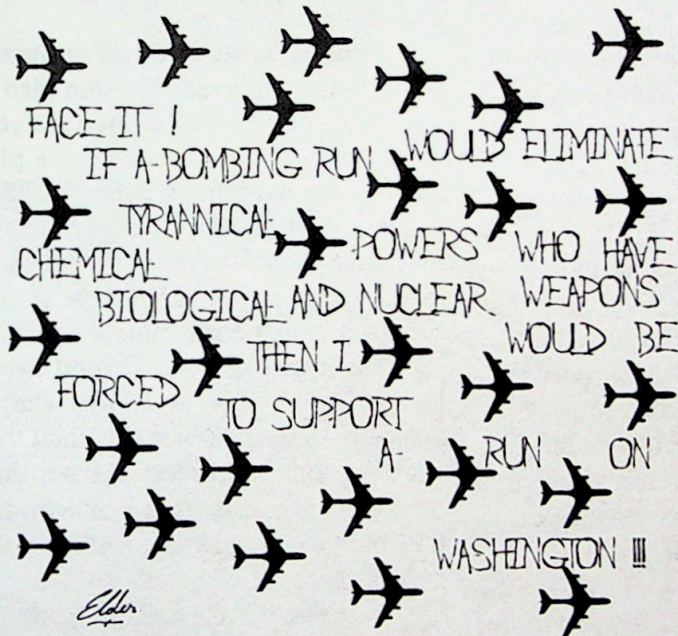 FACE IT !
IF A-BOMBING RUN WOULD ELIMINATE
TYRANNICAL POWERS WHO HAVE
CHEMICAL
BIOLOGICAL AND NUCLEAR WEAPONS
THEN I WOULD BE
FORCED
TO SUPPORT
A- RUN ON
WASHINGTON !!!
Elder